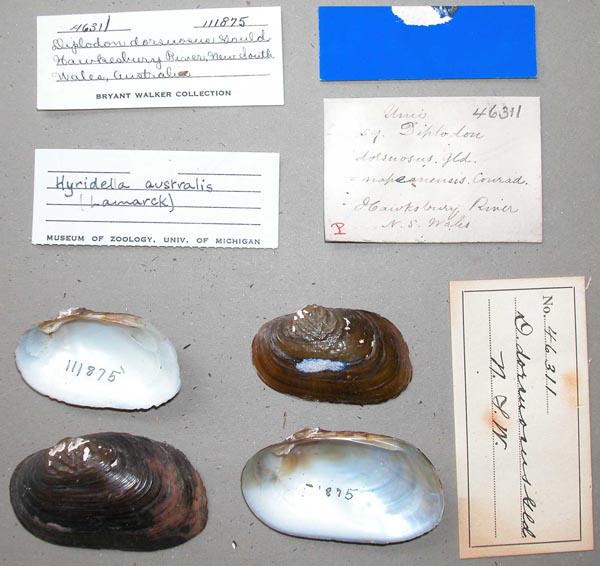 46311 111875
Diplodon dorsuosus Gould
Hawkesbury River, New South
Wales, Australia
BRYANT WALKER COLLECTION
Unio 46311
sg. Diplodon
dorsuosus. Gld.
= napeanensis. Conrad.
Hawksbury River
N. S. Wales
Hyridella australis
(Lamarck)
MUSEUM OF ZOOLOGY, UNIV. OF MICHIGAN
111875
11875
No. 46311
D. dorsuosus Gld.
N. S. W.